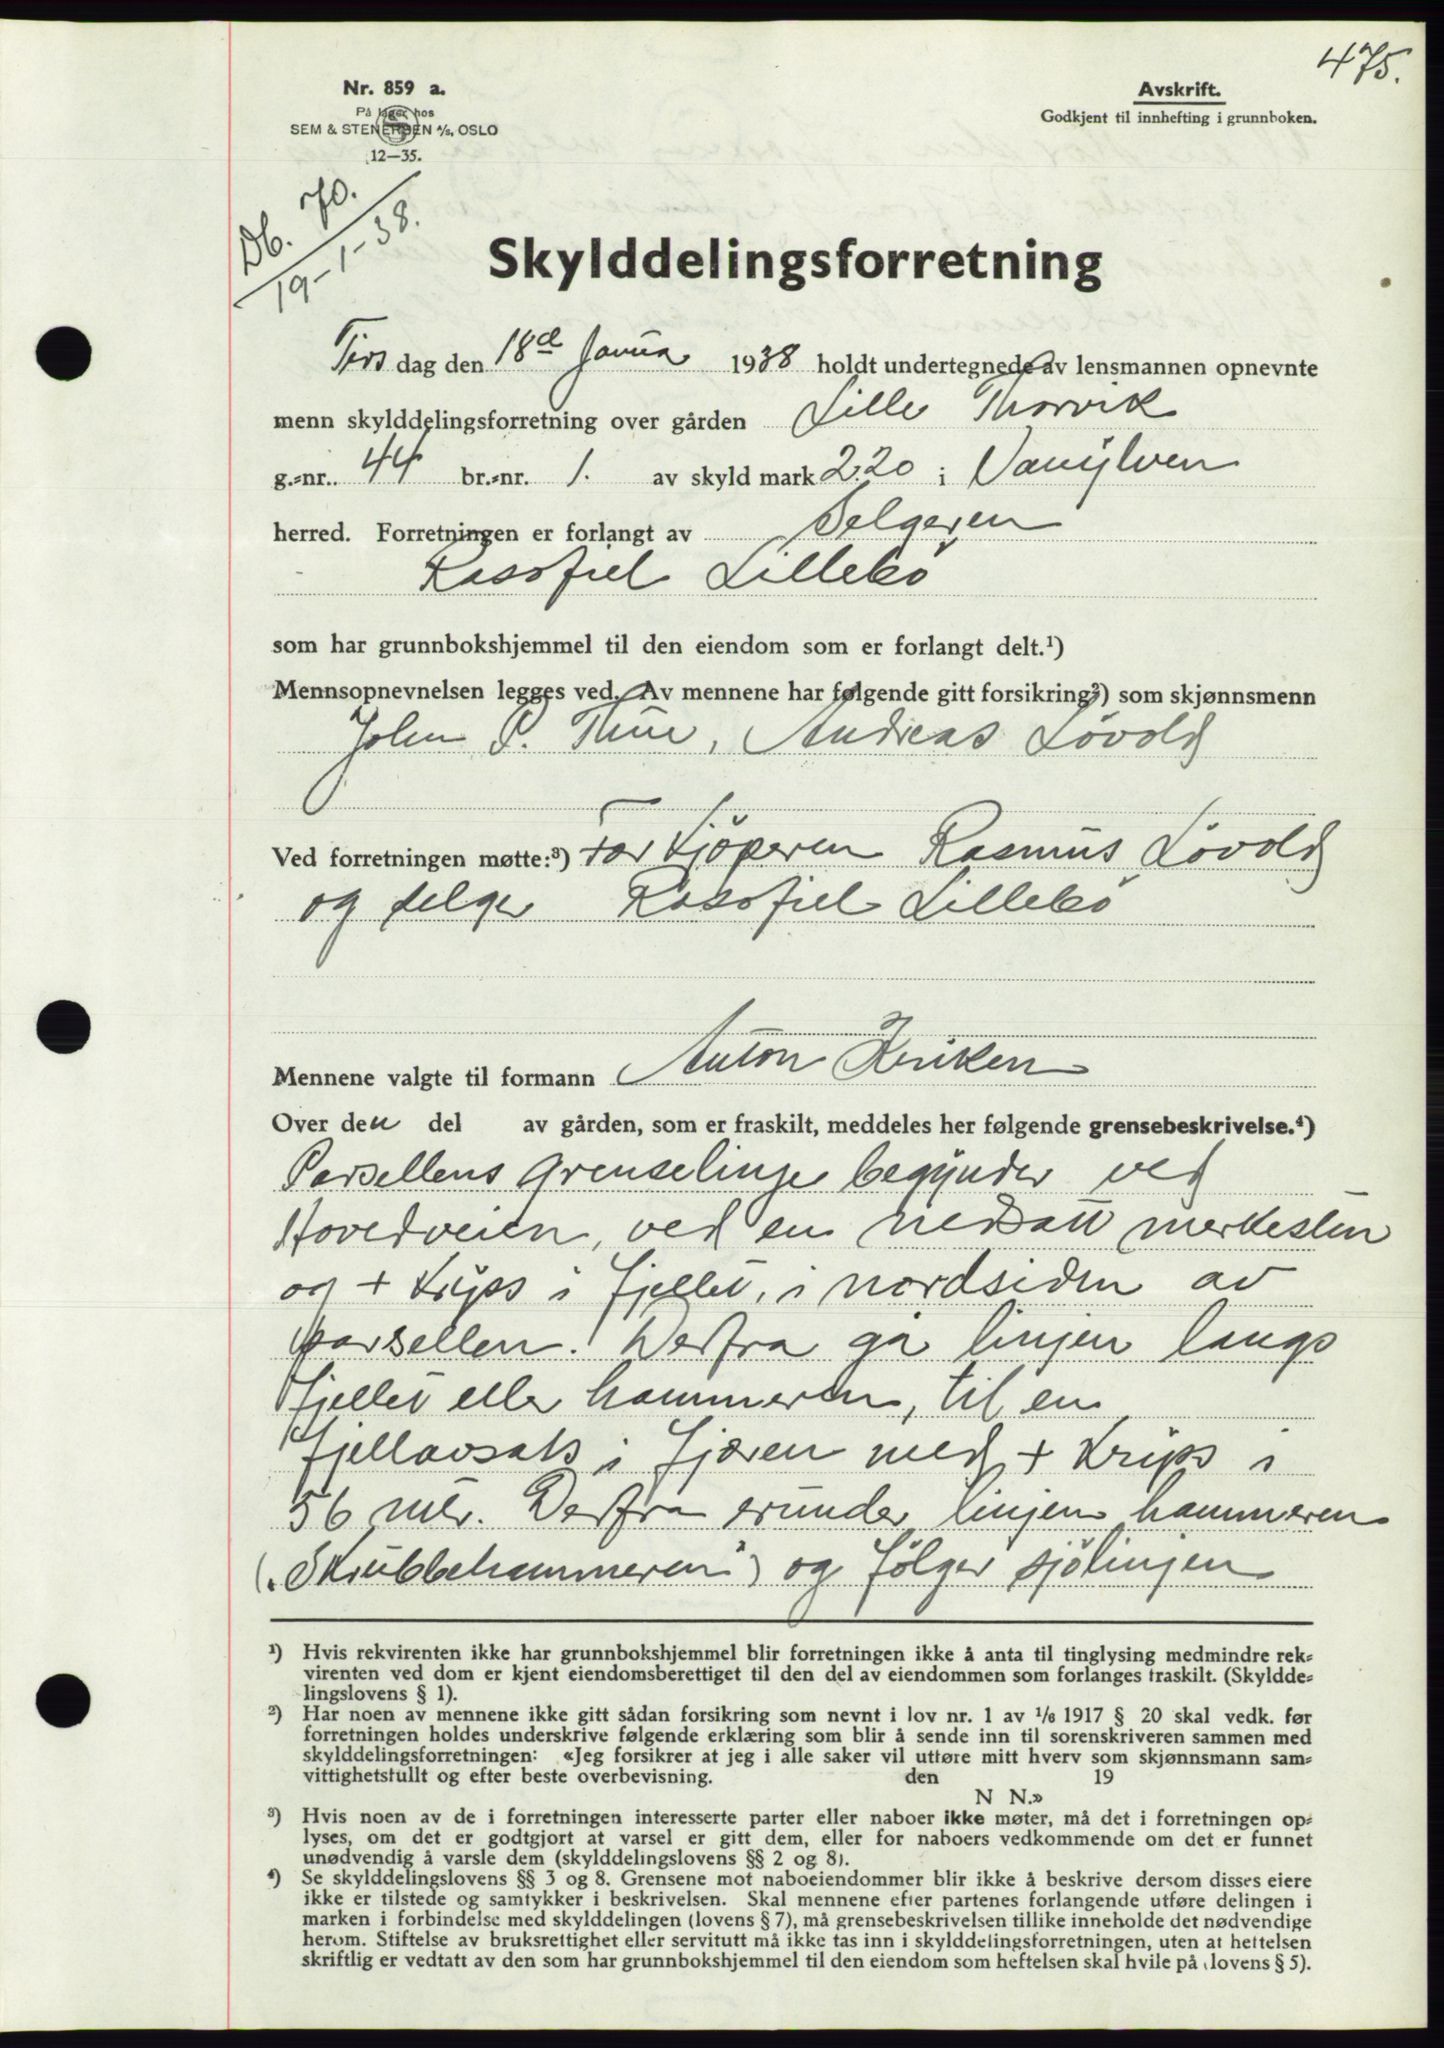 475.
Nr. 859 a.
På lager hos
SEM & STENERSEN A/S, OSLO
12—35.
Avskrift.
Godkjent til innhefting i grunnboken.
Db. 70.
19-1-38.
Skylddelingsforretning
Tirsdag den 18d Janua 1938 holdt undertegnede av lensmannen opnevnte
menn skylddelingsforretning over gården Lille Thorvik
g.=nr. 44 br.=nr. 1. av skyld mark 2.20 i Vanylven
herred. Forretningen er forlangt av Selgeren
Rasofiel Lillebö
som har grunnbokshjemmel til den eiendom som er forlangt delt.¹)
Mennsopnevnelsen legges ved. Av mennene har følgende gitt forsikring²) som skjønnsmenn
John P. Thue, Andreas Løvold
Ved forretningen møtte:³) For Kjöperen Rasmus Løvold
og selger Rasofiel Lillebö
Mennene valgte til formann Anton
Over den del av gården, som er fraskilt, meddeles her følgende grensebeskrivelse.⁴)
Parsellens Grenselinje begynder ved
Hovedveien, ved en nedsatt merkesten
og + Kryss i fjellet, i nordsiden av
parsellen. Derfra gå linjen langs
fjellet eller hammeren, til en
fjellavsats i fjæren med + Kryss i
56 mtr. Derfra runder linjen hammeren
(„Skrubbehammeren") og følger sjölinjen
¹) Hvis rekvirenten ikke har grunnbokshjemmel blir forretningen ikke å anta til tinglysing medmindre rek=
virenten ved dom er kjent eiendomsberettiget til den del av eiendommen som forlanges fraskilt. (Skyldde=
lingslovens § 1).
²) Har noen av mennene ikke gitt sådan forsikring som nevnt i lov nr. 1 av 1/6 1917 § 20 skal vedk. før
forretningen holdes underskrive følgende erklæring som blir å sende inn til sorenskriveren sammen med
skylddelingsforretningen: «Jeg forsikrer at jeg i alle saker vil utføre mitt hverv som skjønnsmann sam=
vittighetsfullt og efter beste overbevisning. den 19
N N.»
³) Hvis noen av de i forretningen interesserte parter eller naboer ikke møter, må det i forretningen op=
lyses, om det er godtgjort at varsel er gitt dem, eller for naboers vedkommende om det er funnet
unødvendig å varsle dem (skylddelingslovens §§ 2 og 8).
⁴) Se skylddelingslovens §§ 3 og 8. Grensene mot naboeiendommer blir ikke å beskrive dersom disses eiere
ikke er tilstede og samtykker i beskrivelsen. Skal mennene efter partenes forlangende utføre delingen i
marken i forbindelse med skylddelingen (lovens § 7), må grensebeskrivelsen tillike inneholde det nødvendige
herom. Stiftelse av bruksrettighet eller servitutt må ikke tas inn i skylddelingsforretningen, uten at heftelsen
skriftlig er vedtatt av den som har grunnbokshjemmel til den eiendom som heftelsen skal hvile på (lovens § 5).